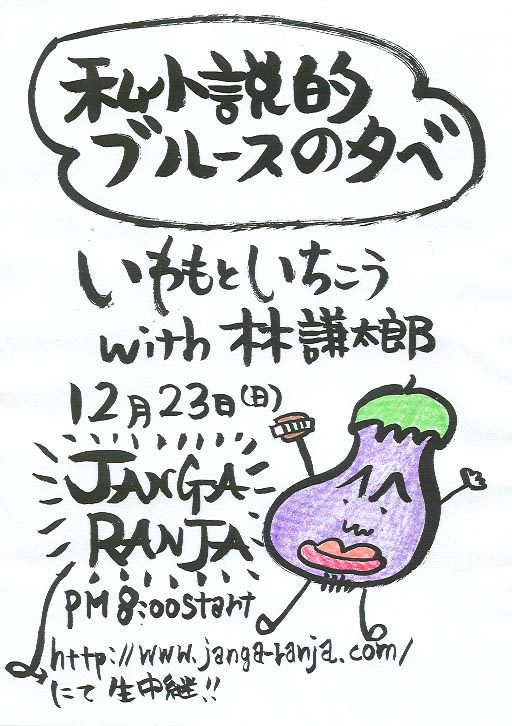 私小説的
ブルースの夕べ
いわもといちこう
with 林謙太郎
12月23日(日)
JANGA
RANJA
PM 8:00 start
http://www.janga-ranja.com/
にて生中継!!